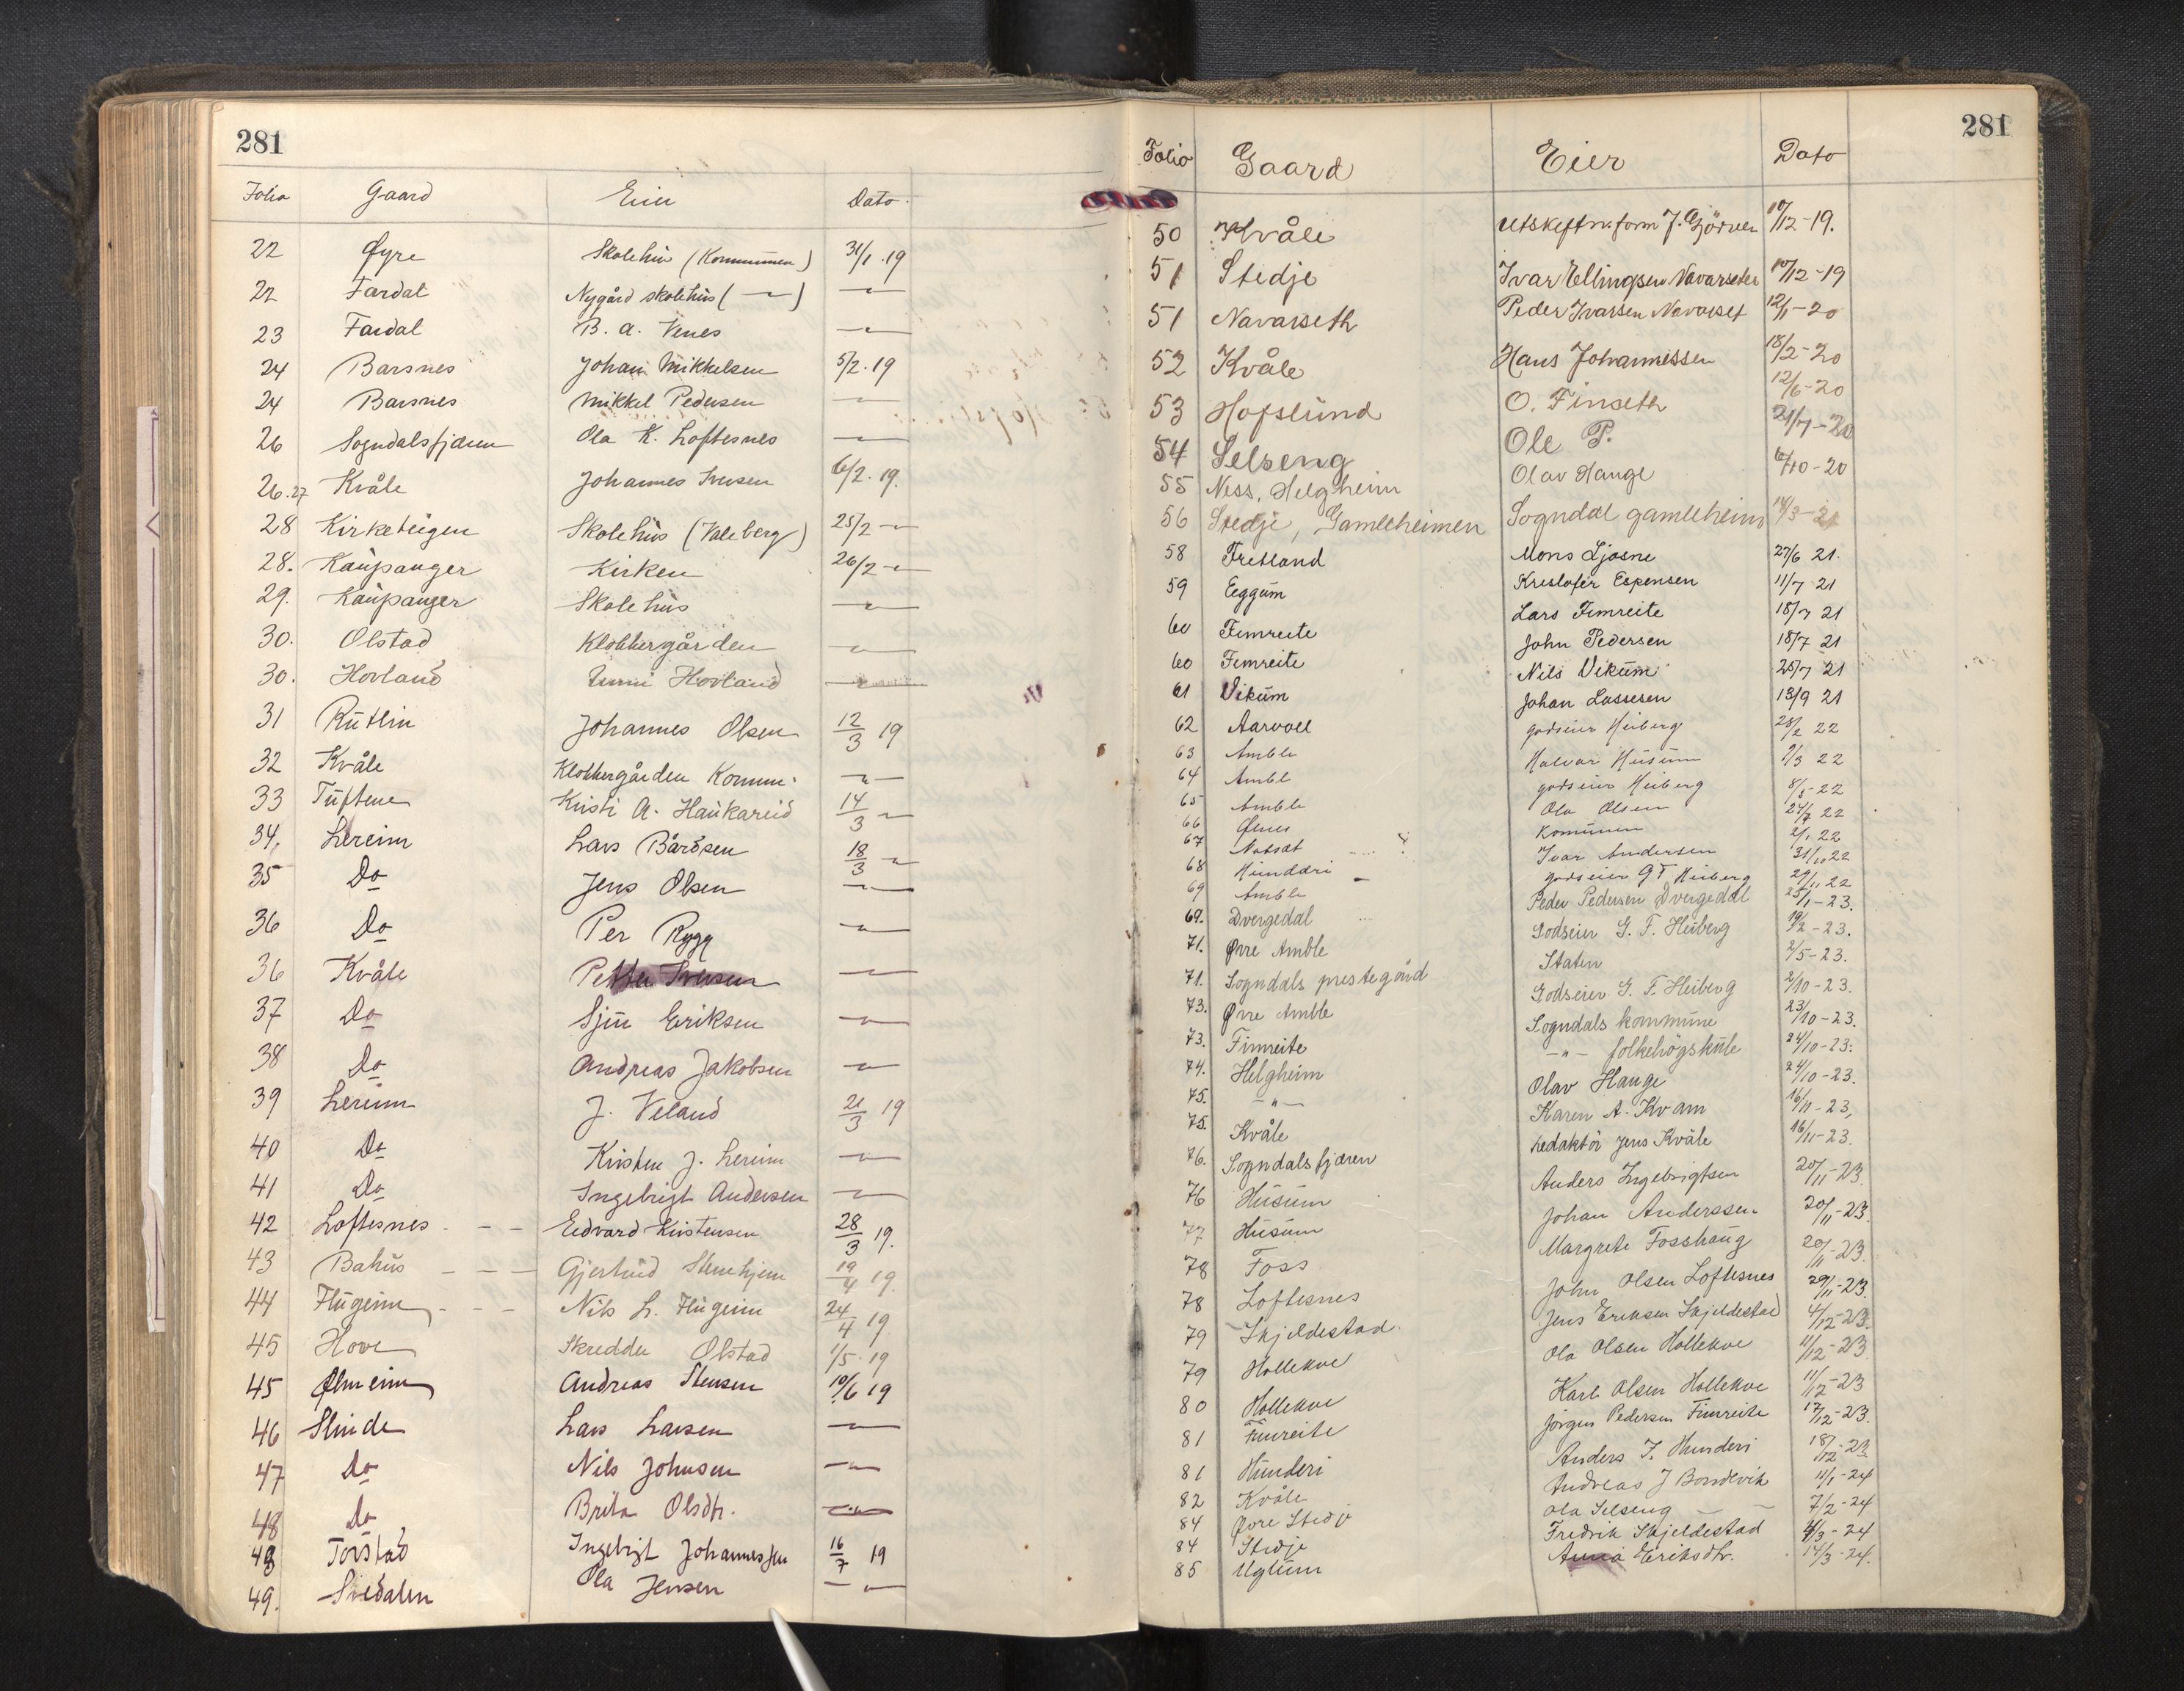 281
Folio Gaard Eier Dato
22 Øyre Skolehus (Kommunen) 31/1.19
22 Fardal Nygård skolehus ( —"— ) —"—
23 Fardal B. A. Venes —"—
24 Barsnes Johan Mikkelsen 5/2.19
24 Barsnes Mikkel Pedersen —"—
26 Sogndalsfjæren Ola K. Loftesnes —"—
26.27 Kvåle Johannes Iversen 6/2.19.
28 Kirketeigen Skolehus (Valeberg) 25/2 —"—
28. Kaupanger Kirken 26/2 —"—
29. Kaupanger Skolehus —"—
30. Olstad Klokkergården —"—
30. Hovland Hovland —"—
31 Rutlin Johannes Olsen 12/3 19
32 Kvåle Klokkergården Komm. —"—
33 Tuftene Kristi A. Haukareid 14/3 —"—
34. Lereim Lars Bårdsen 18/3 —"—
35 Do Jens Olsen —"—
36 Do Per Rygg —"—
36 Kvåle Petter Iversen —"—
37 Do Eriksen —"—
38 Do Andreas Jakobsen —"—
39 Lereim J. Veland 21/3 19
40 Do Kristen J. Lereim —"—
41 Do Ingebrigt Andersen —"—
42 Loftesnes - — — Edvard Kristensen 28/3 19.
43 Bahus — — — Gjertrud Stenehjem 19/4 19.
44 Flugeim - - - Nils L. Flugeim 24/4 19
45 Hove Skredder Olstad 1/5.19
45 Ølmeim Andreas Stensen 10/6 19
46 Slinde Lars Larsen —"—
47 Do Nils Johnsen —"—
48 Do Brita Olsdtr. —"—
48 Torstad Ingebrigt Johannessen 16/7 19
49. Ola Jensen —"—
281
Folio Gaard Eier Dato
50 Kvåle Utskiftn.form J. Gjörven 10/12-19.
51 Stedje Ivar Ellingsen Navarseter 10/12-19
51 Navarseth Peder Ivarsen Navarset 12/1-20
52 Kvåle Hans Johannessen 18/2-20
53 Hofslund O. Finseth 12/6-20
54 Selseng Ole P. 21/7-20
55 Ness, Helgheim Olav Hauge 6/10-20
56 Stedje, Gamleheimen Sogndal gamleheim 14/3-21
58 Fretland Mons Ljosne 27/6 21.
59 Eggum Kristofer Espensen 11/7 21
60 Fimreite Lars Fimreite 18/7 21
60 Fimreite John Pedersen 18/7 21
61 Vikum Nils Vikum 25/7 21
62 Aarvoll Johan Lassesen 13/9 21
63 Amble godseier Heiberg 28/2 22
64 Amble Halvar Husum 1/3 22
65 Amble godseier Heiberg 8/5-22
66 Ølnes Ola Olsen 24/7 22
67 Natsat Kommunen 22
68 Hunderi Ivar Andersen 31/10 22
69 Amble godseier G F Heiberg 29/11 22
69. Dvergedal Peder Pedersen Dvergedal 25/1-23.
71. Øvre Amble Godseier G. F. Heiberg 19/2-23.
71. Sogndals prestegård Staten 2/5-23.
73. Øvre Amble Godseier G. F. Heiberg 2/10-23.
73. Fimreite Sogndals kommune 23/10-23.
74. Helgheim —"— folkehögskule 24/10-23.
75. —"— Olav Hauge 24/10-23.
75. Kvåle Karen A. Kvam 16/11-23,
76. Sogndalsfjæren redaktör Jens Kvåle 16/11-23.
76 Husum Anders Ingebrigtsen 20/11-23.
77 Husum Johan Anderssen 20/11-23.
78 Foss Margrete Fosshaug 20/11-23.
78 Loftesnes John Olsen Loftesnes 29/11-23.
79 Skjeldestad Jens Eriksen Skjeldestad 4/12-23.
79 Hollekve Ola Olsen Hollekve 11/12-23
80 Hollekve Karl Olsen Hollekve 11/12-23
81 Fimreite Jörgen Pedersen Fimreite 17/12-23.
81 Hunderi Anders I. Hunderi 18/12-23
82 Kvåle Andreas J Bondevik 11/1-24
84 Øvre Stedje Ola Selseng — — 7/2-24
84 Stedje Fredrik Skjeldestad 4/3-24
85 Uglum Anna Eriksdtr. 14/3-24.